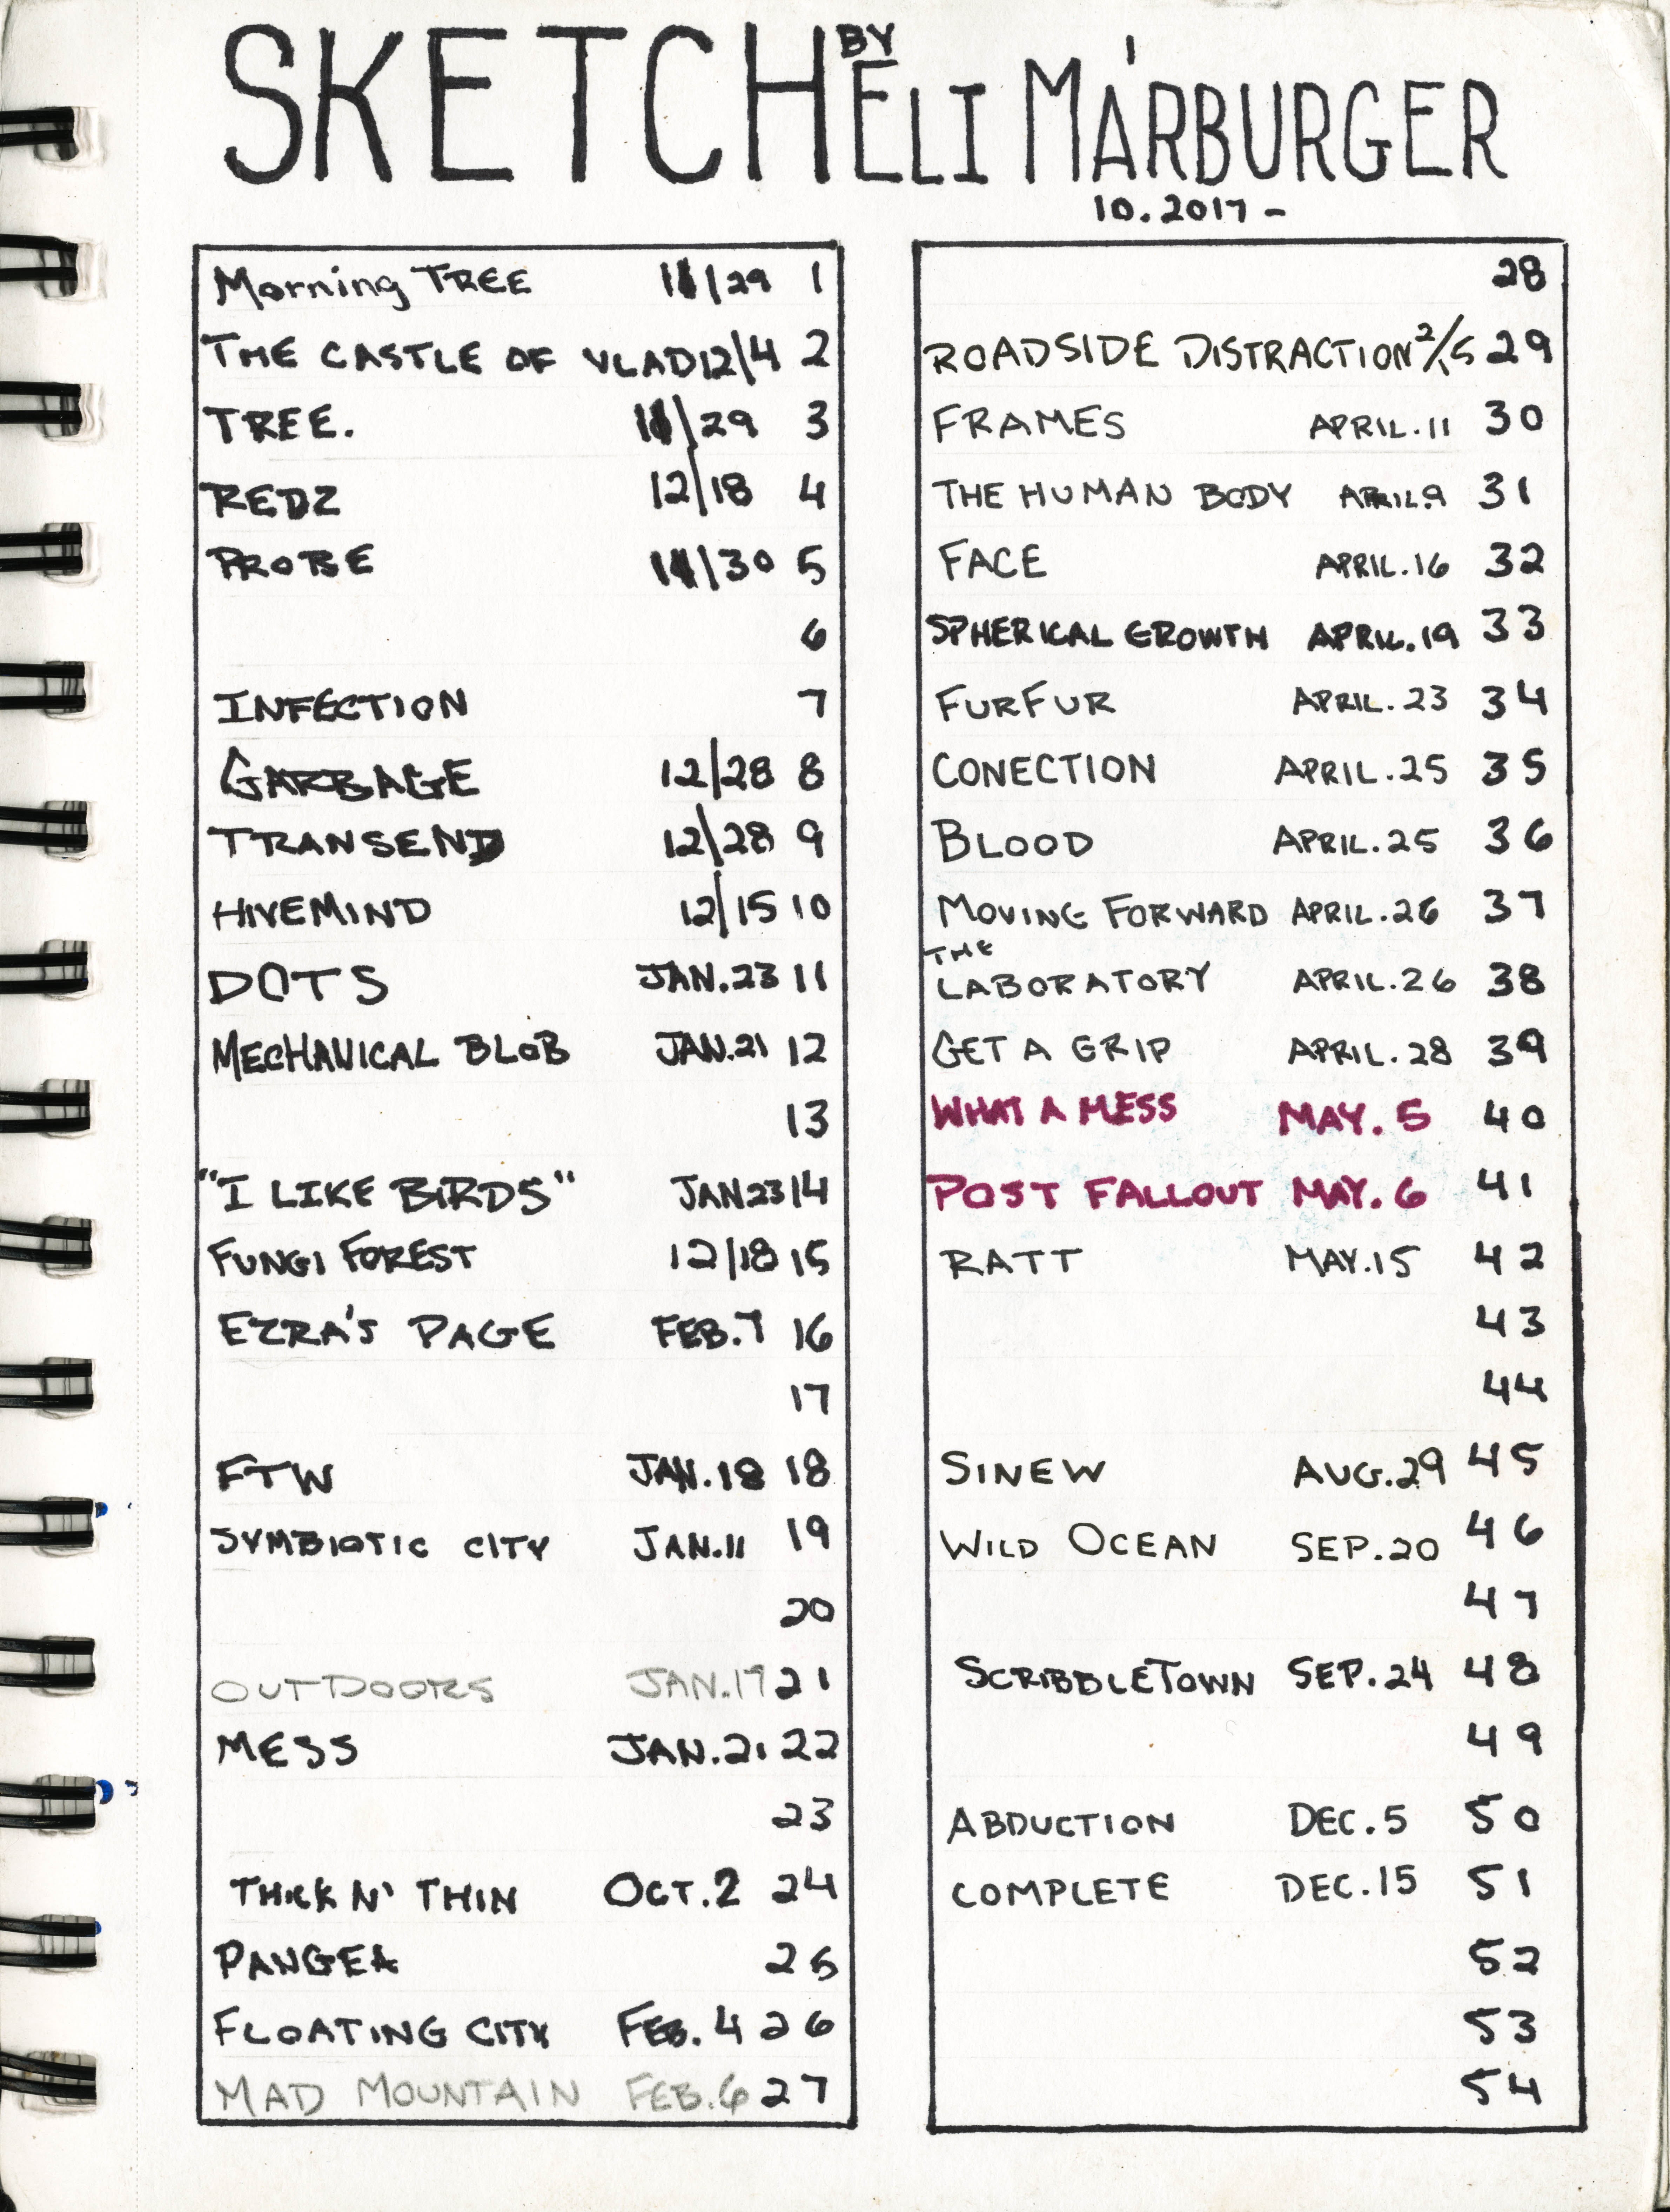 SKETCH BY ELI MARBURGER
10.2017 -
Morning TREE 11/29 1
THE CASTLE OF VLAD 12/4 2
TREE. 11/29 3
REDZ 12/18 4
PROBE 11/30 5
6
INFECTION 7
GARBAGE 12/28 8
TRANSEND 12/28 9
HIVEMIND 12/15 10
DOTS JAN.23 11
MECHANICAL BLOB JAN.21 12
13
"I LIKE BIRDS" JAN23 14
FUNGI FOREST 12/18 15
EZRA'S PAGE FEB.7 16
17
FTW JAN.18 18
SYMBIOTIC CITY JAN.11 19
20
OUTDOORS JAN.19 21
MESS JAN.21 22
23
THICK N' THIN OCT.2 24
PANGEA 25
FLOATING CITY FEB.4 26
MAD MOUNTAIN FEB.6 27
28
ROADSIDE DISTRACTION 2/5 29
FRAMES APRIL.11 30
THE HUMAN BODY APRIL.9 31
FACE APRIL.16 32
SPHERICAL GROWTH APRIL.19 33
FURFUR APRIL.23 34
CONECTION APRIL.25 35
BLOOD APRIL.25 36
MOVING FORWARD APRIL.26 37
THE
LABORATORY APRIL.26 38
GET A GRIP APRIL.28 39
WHAT A MESS MAY.5 40
POST FALLOUT MAY.6 41
RATT MAY.15 42
43
44
SINEW AUG.29 45
WILD OCEAN SEP.20 46
47
SCRIBBLETOWN SEP.24 48
49
ABDUCTION DEC.5 50
COMPLETE DEC.15 51
52
53
54